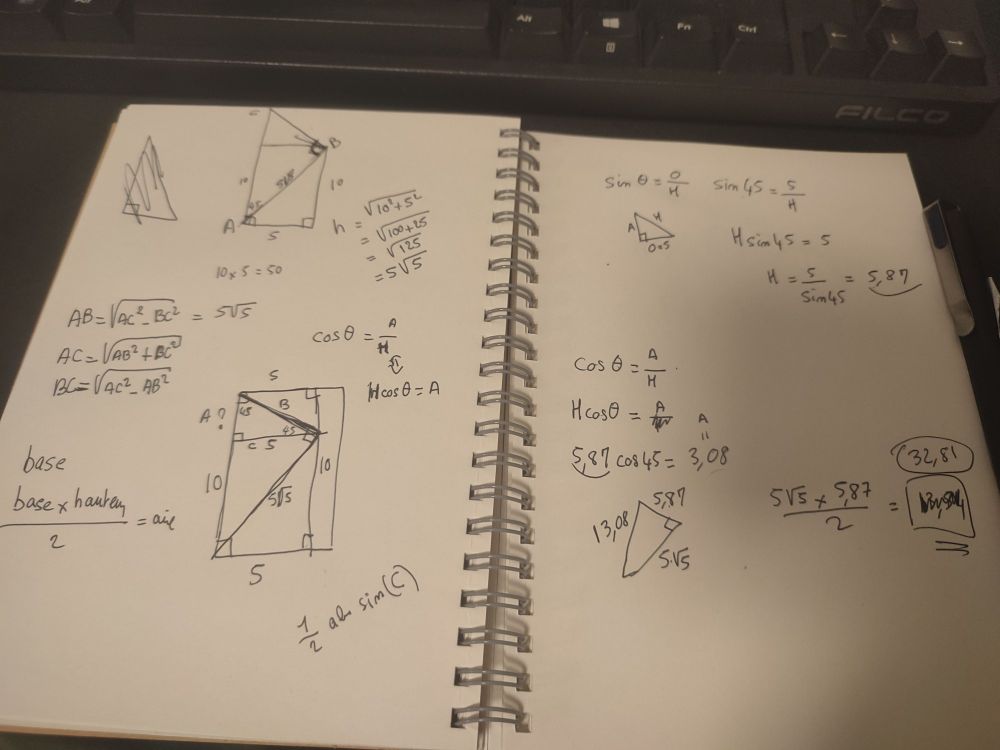 Alt
Fn
Ctrl
FILCO
C
B
10
5√5
10
45
A
5
h = √10²+5²
= √100+25
= √125
= 5√5
10 x 5 = 50
AB = √AC² - BC² = 5√5
AC = √AB² + BC²
BC = √AC² - AB²
cos θ = A/H
H cos θ = A
5
A?
45
B
C 5
45
10
5√5
10
5
base
base x hauteur / 2 = aire
1/2 ab sin(C)
sin θ = O/H
sin 45 = 5/H
A
H
O=5
H sin 45 = 5
H = 5/sin 45 = 5,87
cos θ = A/H
H cos θ = A
A
=
5,87 cos 45 = 3,08
5,87
13,08
5√5
5√5 x 5,87 / 2 =
32,81